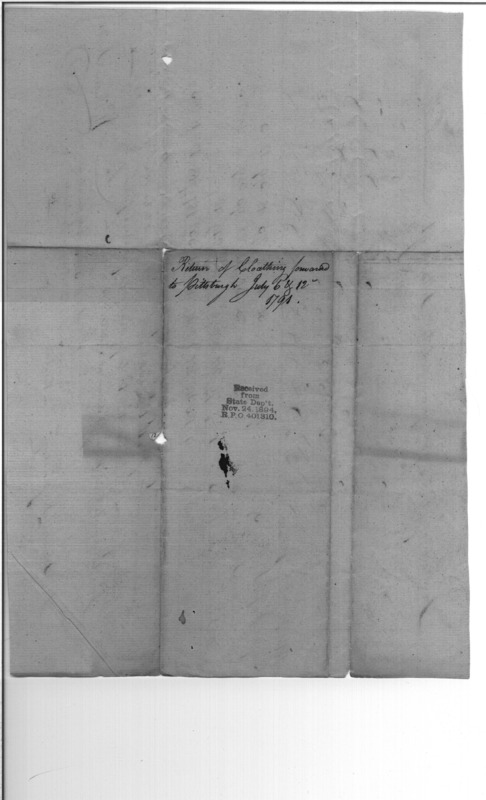 Return of Cloathing forwarded
to Pittsburgh July 6 & 12
1791.
Received
from
State Dep't.
Nov. 24, 1894,
R.P.O 401810.